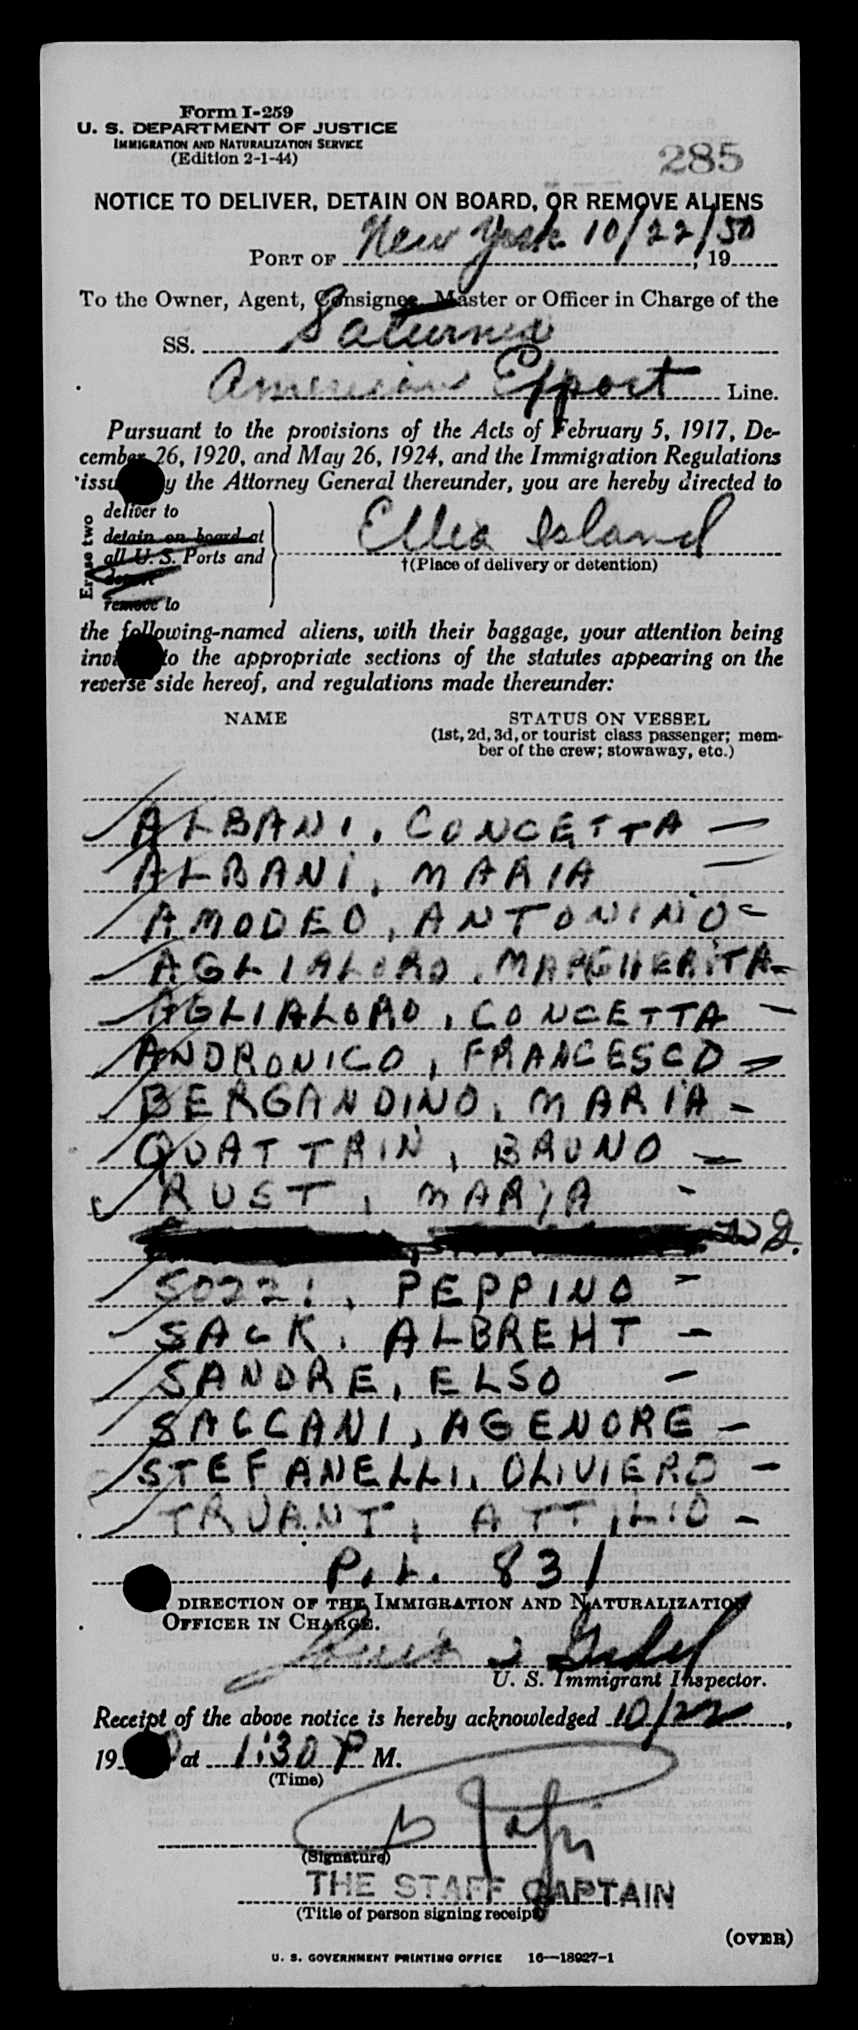 Form I-259
U. S. DEPARTMENT OF JUSTICE
IMMIGRATION AND NATURALIZATION SERVICE
(Edition 2-1-44)
285
NOTICE TO DELIVER, DETAIN ON BOARD, OR REMOVE ALIENS
PORT OF New York 10/22/50, 19
To the Owner, Agent, Consignee, Master or Officer in Charge of the
SS. Saturnia
American Export Line.
Pursuant to the provisions of the Acts of February 5, 1917, De-
cember 26, 1920, and May 26, 1924, and the Immigration Regulations
issu y the Attorney General thereunder, you are hereby directed to
Erase two
deliver to
detain on board at
all U. S. Ports and
deport
remove to
Ellis Island
†(Place of delivery or detention)
the following-named aliens, with their baggage, your attention being
invi to the appropriate sections of the statutes appearing on the
reverse side hereof, and regulations made thereunder:
NAME STATUS ON VESSEL
(1st, 2d, 3d, or tourist class passenger; mem-
ber of the crew; stowaway, etc.)
ALBANI, CONCETTA —
ALBANI, MARIA —
AMODEO, ANTONINO -
AGLIALORO, MARGHERITA -
AGLIALORO, CONCETTA -
ANDRONICO, FRANCESCO -
BERGANDINO, MARIA -
QUATTRIN, BRUNO -
RUST, MARIA -
SOZZI, PEPPINO -
SACK, ALBREHT -
SANDRE, ELSO -
SACCANI, AGENORE -
STEFANELLI, OLIVIERO -
TRUANT, ATTILIO -
P. L. 831
DIRECTION OF THE IMMIGRATION AND NATURALIZATION
OFFICER IN CHARGE.
U. S. Immigrant Inspector.
Receipt of the above notice is hereby acknowledged 10/22,
19 0 at 1:30 P M.
(Time)
(Signature)
THE STAFF CAPTAIN
(Title of person signing receipt)
(OVER)
U. S. GOVERNMENT PRINTING OFFICE 16—18927-1